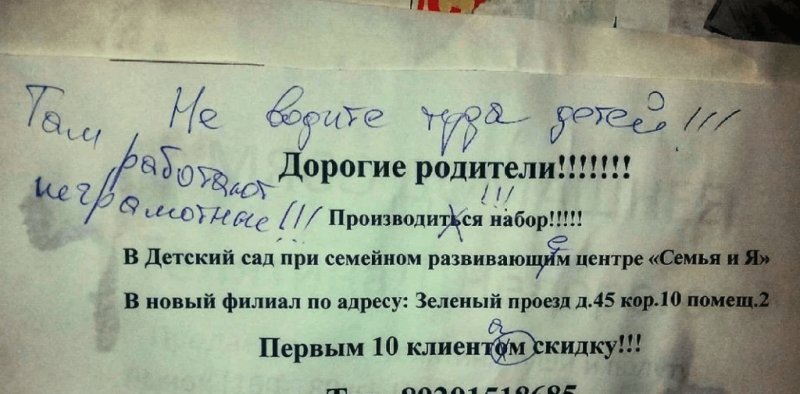 Не водите туда детей!!!
Там работают неграмотные!!!
Дорогие родители!!!!!!!
!!!
Производиться набор!!!!!
е
В Детский сад при семейном развивающим центре «Семья и Я»
В новый филиал по адресу: Зеленый проезд д.45 кор.10 помещ.2
а
Первым 10 клиентом скидку!!!